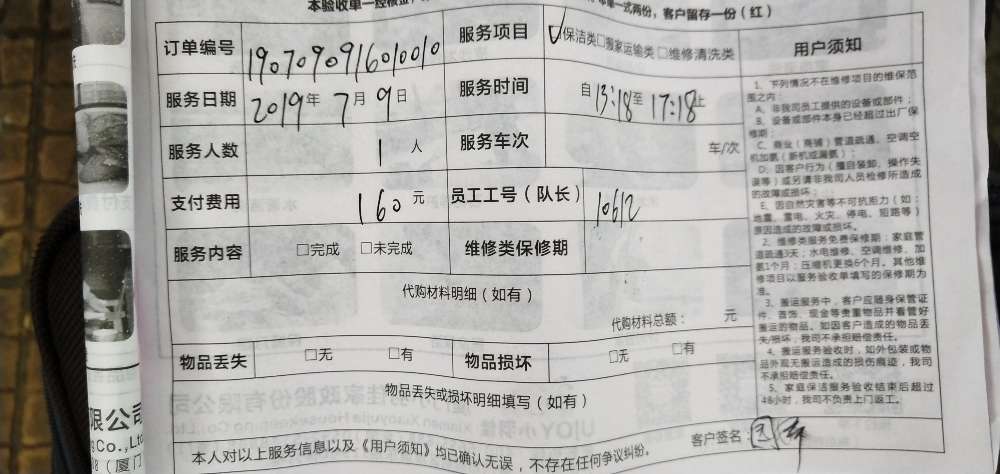 本验收单一经核签，
单一式两份，客户留存一份（红）
订单编号 1907090916010010
服务项目 ✓保洁类□搬家运输类□维修清洗类
服务日期 2019年7月9日
服务时间 自13:18至17:18止
服务人数 1人
服务车次 车/次
支付费用 160元
员工工号（队长） 10612
服务内容 □完成 □未完成
维修类保修期
代购材料明细（如有）
代购材料总额： 元
物品丢失 □无 □有
物品损坏 □无 □有
物品丢失或损坏明细填写（如有）
本人对以上服务信息以及《用户须知》均已确认无误，不存在任何争议纠纷。
客户签名：
用户须知
1、下列情况不在维修项目的维保范
围之内：
A、非我司员工提供的设备或部件；
B、设备或部件本身已经超过出厂保
修期；
C、商业（商铺）管道疏通、空调空
机加氨（新机或漏氨）；
D、因客户行为（擅自装卸、操作失
误等）或另请非我司人员检修所造成
的故障或损坏；
E、因自然灾害等不可抗原力（如：
地震、雷电、火灾、停电、短路等）
原因造成的故障或损坏。
2、维修类服务免费保修期：家庭管
道疏通3天；水电维修、空调维修、加
氨1个月；压缩机更换6个月。其他维
修项目以服务验收单填写的保修期为
准。
3、搬运服务中，客户应随身保管证
件、首饰、现金等贵重物品并看管好
搬运的物品。如因客户造成的物品丢
失/损坏，我司不承担赔偿责任。
4、搬运服务验收时，如外包装或物
品外观无搬运造成的损伤痕迹，我司
不承担赔偿责任。
5、家庭保洁服务验收结束后超过
48小时，我司不负责上门返工。
限公司
Co.,Ltd
（厦门